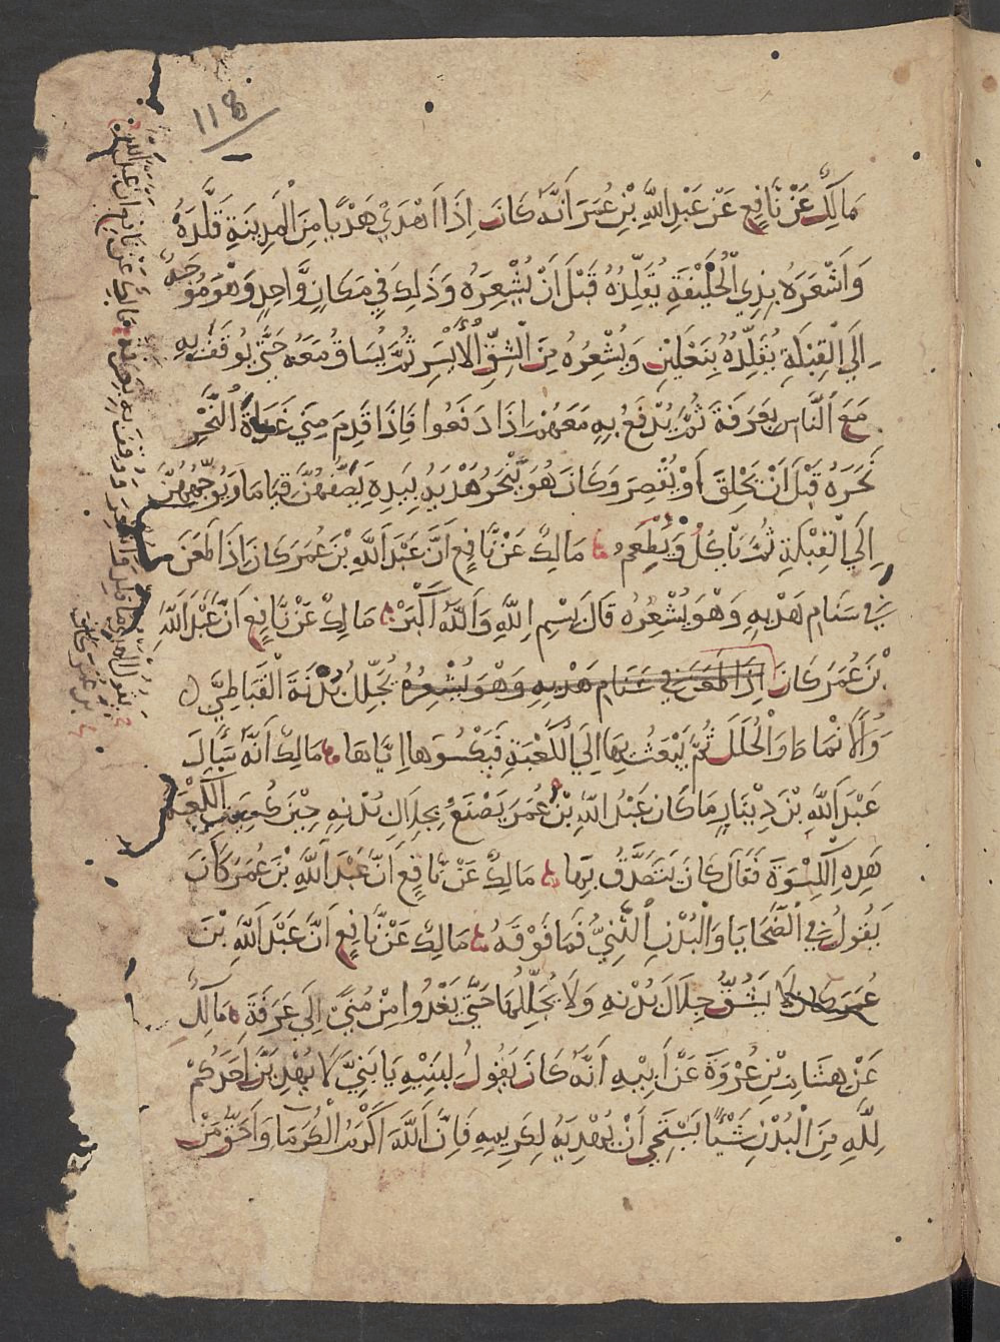 118
مَالِكٌ عَنْ نَّافِعٍ عَنْ عَبْدِ اللَّهِ بْنِ عُمَرَ أَنَّهُ كَانَ إِذَا أَهْدَىٰ هَدْيًا مِنَ الْمَدِينَةِ قَلَّدَهُ
وَأَشْعَرَهُ بِذِي الْحُلَيْفَةِ يُقَلِّدُهُ قَبْلَ أَنْ يُشْعِرَهُ وَذَلِكَ فِي مَكَانٍ وَّاحِدٍ وَهْوَ مُوَجِّهٌ
إِلَى الْقِبْلَةِ يُقَلِّدُهُ بِنَعْلَيْنِ وَيُشْعِرُهُ مِنَ الشِّقِّ الْأَيْسَرِ ثُمَّ يُسَاقُ مَعَهُ حَتَّى يُوقَفَ بِهِ
مَعَ النَّاسِ بِعَرَفَةَ ثُمَّ يُدْفَعُ بِهِ مَعَهُمْ إِذَا دَفَعُوا فَإِذَا قَدِمَ مِنًى غَدَاةَ النَّحْرِ
نَحَرَهُ قَبْلَ أَنْ يَحْلِقَ أَوْ يُقَصِّرَ وَكَانَ هُوَ يَنْحَرُ هَدْيَهُ بِيَدِهِ يَصُفُّهُنَّ قِيَامًا وَيُوَجِّهُهُنَّ
إِلَى الْقِبْلَةِ ثُمَّ يَأْكُلُ وَيُطْعِمُ مَالِكٌ عَنْ نَّافِعٍ أَنَّ عَبْدَ اللَّهِ بْنَ عُمَرَ كَانَ إِذَا طَعَنَ
فِي سَنَامِ هَدْيِهِ وَهْوَ يُشْعِرُهُ قَالَ بِسْمِ اللَّهِ وَاللَّهُ أَكْبَرُ مَالِكٌ عَنْ نَّافِعٍ أَنَّ عَبْدَ اللَّهِ
بْنَ عُمَرَ كَانَ إِذَا طَعَنَ فِي سَنَامِ هَدْيِهِ وَهْوَ يُشْعِرُهُ يُجَلِّلُ بُدْنَهُ الْقَبَاطِيَّ
وَالْأَنْمَاطَ وَالْحُلَلَ ثُمَّ يَبْعَثُ بِهَا إِلَى الْكَعْبَةِ فَيَكْسُوهَا إِيَّاهَا مَالِكٌ أَنَّهُ سَأَلَ
عَبْدَ اللَّهِ بْنَ دِينَارٍ مَا كَانَ عَبْدُ اللَّهِ بْنُ عُمَرَ يَصْنَعُ بِجِلَالِ بُدْنِهِ حِيْنَ كُسِيَتِ الْكَعْبَةُ
هَذِهِ الْكِسْوَةَ فَقَالَ كَانَ يَتَصَدَّقُ بِهَا مَالِكٌ عَنْ نَّافِعٍ أَنَّ عَبْدَ اللَّهِ بْنَ عُمَرَ كَانَ
يَقُولُ فِي الضَّحَايَا وَالْبُدْنِ الثَّنِيُّ فَمَا فَوْقَهُ مَالِكٌ عَنْ نَّافِعٍ أَنَّ عَبْدَ اللَّهِ بْنَ
عُمَرَ كَانَ لَا يَشُقُّ جِلَالَ بُدْنِهِ وَلَا يُجَلِّلُهَا حَتَّى يَغْدُوا مِنْ مِّنًى إِلَى عَرَفَةَ مَالِكٌ
عَنْ هِشَامِ بْنِ عُرْوَةَ عَنْ أَبِيْهِ أَنَّهُ كَانَ يَقُولُ لِبَنِيْهِ يَا بَنِيَّ لَا يُهْدِيَنَّ أَحَدُكُمْ
لِلَّهِ مِنَ الْبُدْنِ شَيْئًا يَسْتَحِي أَنْ يُهْدِيَهُ لِكَرِيمِهِ فَإِنَّ اللَّهَ أَكْرَمُ الْكُرَمَا وَأَحَقُّ مَنْ
مالك عن نافع ان عبد الله
بن عمر كان
يقول الهدي ما قلد واشعر ووقف به بعرفة